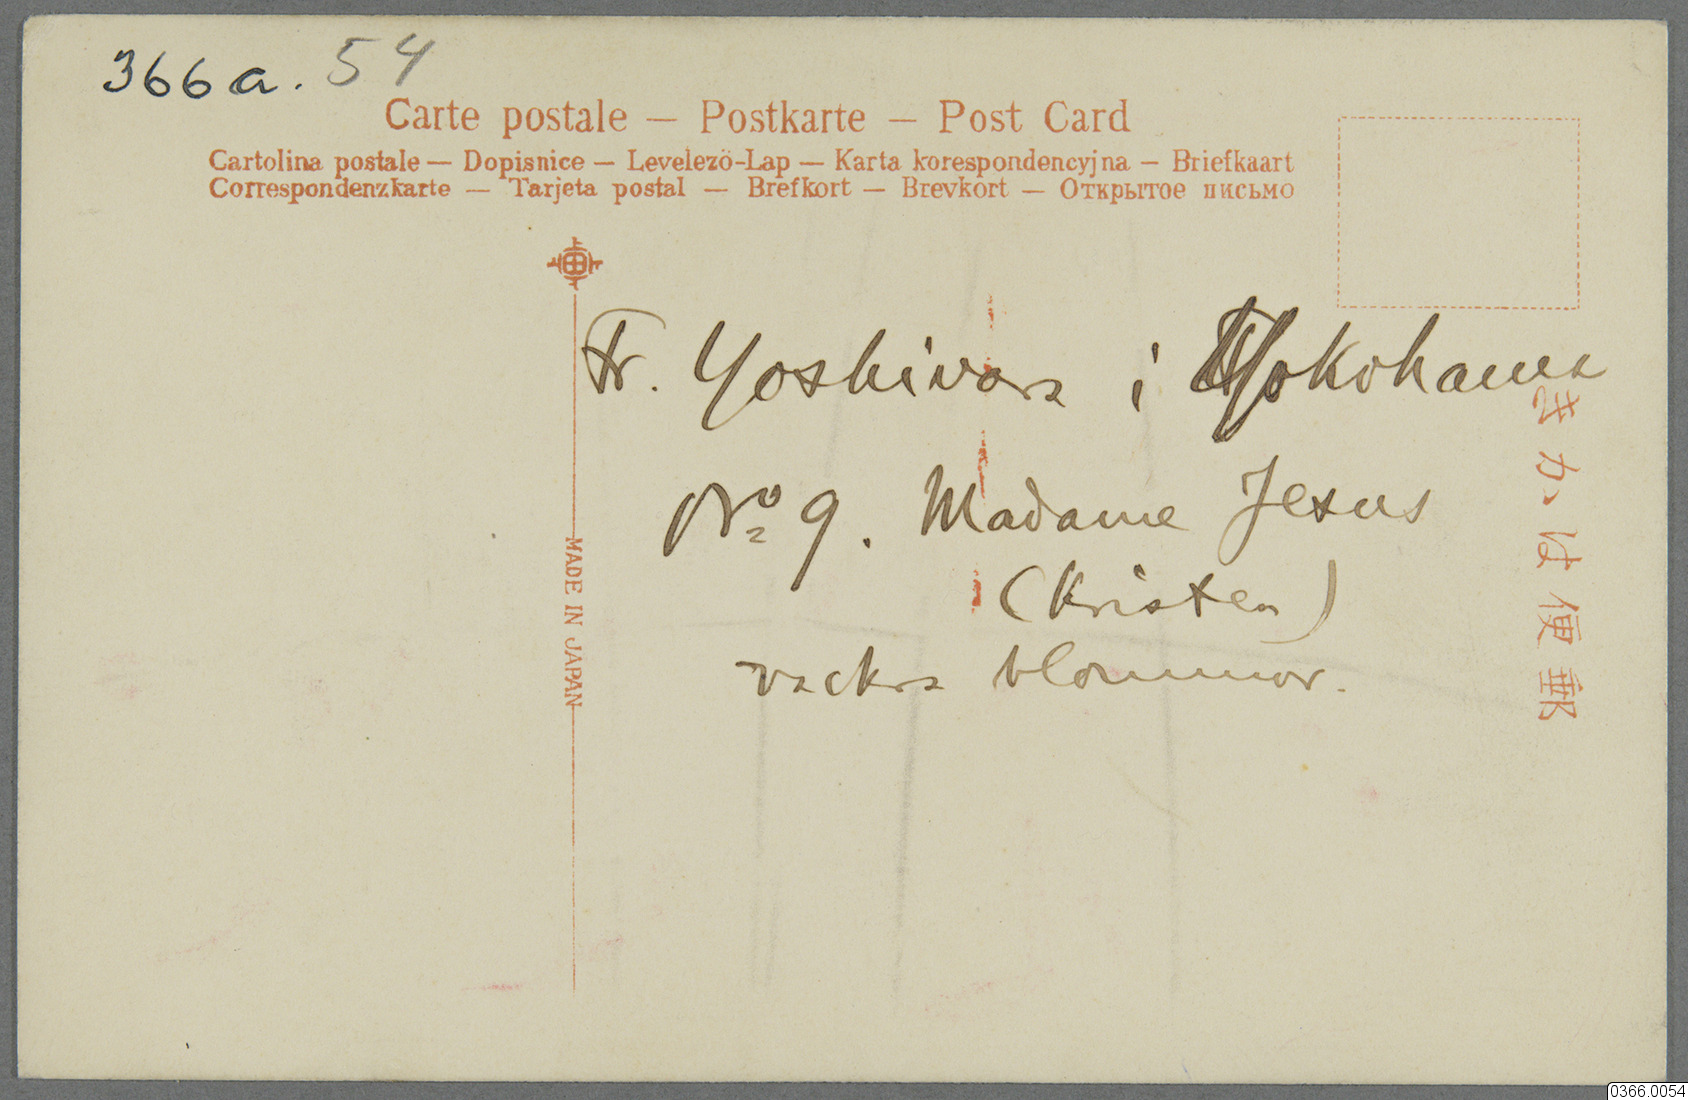 366a. 54
Carte postale — Postkarte — Post Card
Cartolina postale — Dopisnice — Levelező-Lap — Karta korespondencyjna — Briefkaart
Correspondenzkarte — Tarjeta postal — Brefkort — Brevkort — Открытое письмо
Fr. Yoshivara i Yokohama
No 9. Madame Jesus
(Kristen)
vackra blommor.
MADE IN JAPAN
郵便はかき
0366.0054